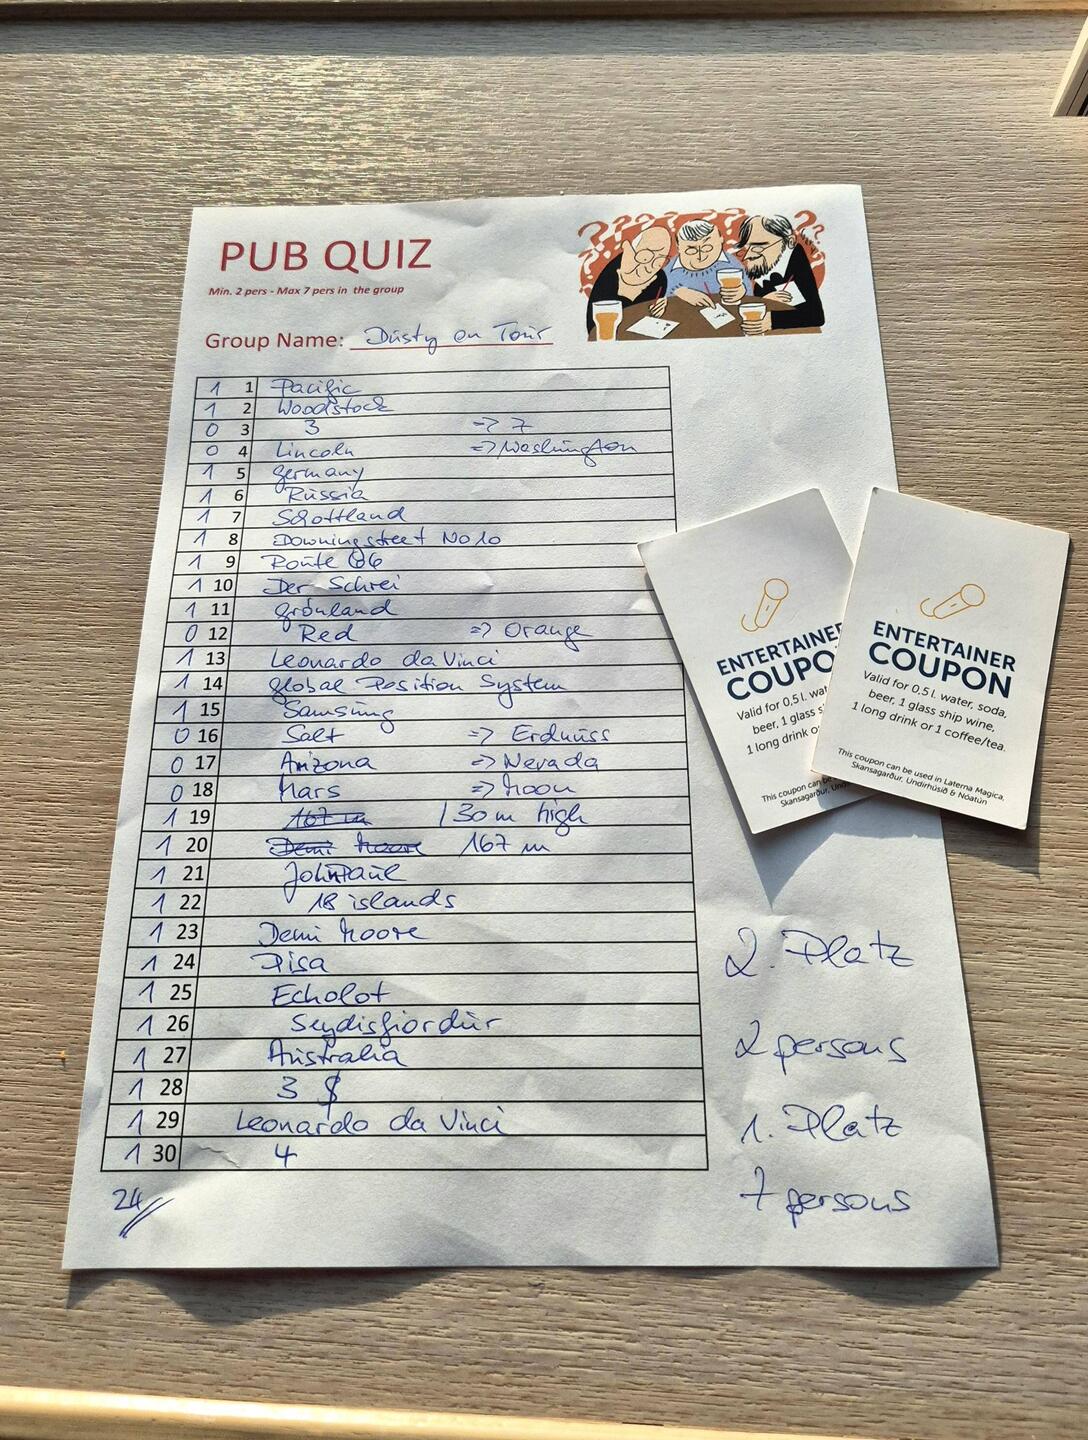 PUB QUIZ
Min. 2 pers - Max 7 pers in the group
Group Name: Dusty on Tour
1 1 Pacific
1 2 Woodstock
0 3 3 => 7
0 4 Lincoln => Washington
1 5 Germany
1 6 Russia
1 7 Schottland
1 8 Downingstreet No 10
1 9 Route 66
1 10 Der Schrei
1 11 Grönland
0 12 Red => Orange
1 13 Leonardo da Vinci
1 14 Global Position System
1 15 Samsung
0 16 Salt => Erdnüss
0 17 Arizona => Nevada
0 18 Mars => Moon
1 19 167 m 130 m high
1 20 Demi Moore 167 m
1 21 John Paul
1 22 18 islands
1 23 Demi Moore
1 24 Pisa
1 25 Echolot
1 26 Seydisfjordur
1 27 Australia
1 28 3 $
1 29 Leonardo da Vinci
1 30 4
24
ENTERTAINER
COUPO
Valid for 0,5 l. wat
beer, 1 glass s
1 long drink o
This coupon can be
Skansagarður, Und
ENTERTAINER
COUPON
Valid for 0,5 l. water, soda,
beer, 1 glass ship wine,
1 long drink or 1 coffee/tea.
This coupon can be used in Laterna Magica,
Skansagarður, Undirhúsið & Nóatún
2. Platz
2 persons
1. Platz
7 persons